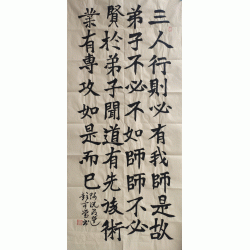 三人行則必有我師是故
弟子不必不如師師不必
賢於弟子聞道有先後術
業有專攻如是而已